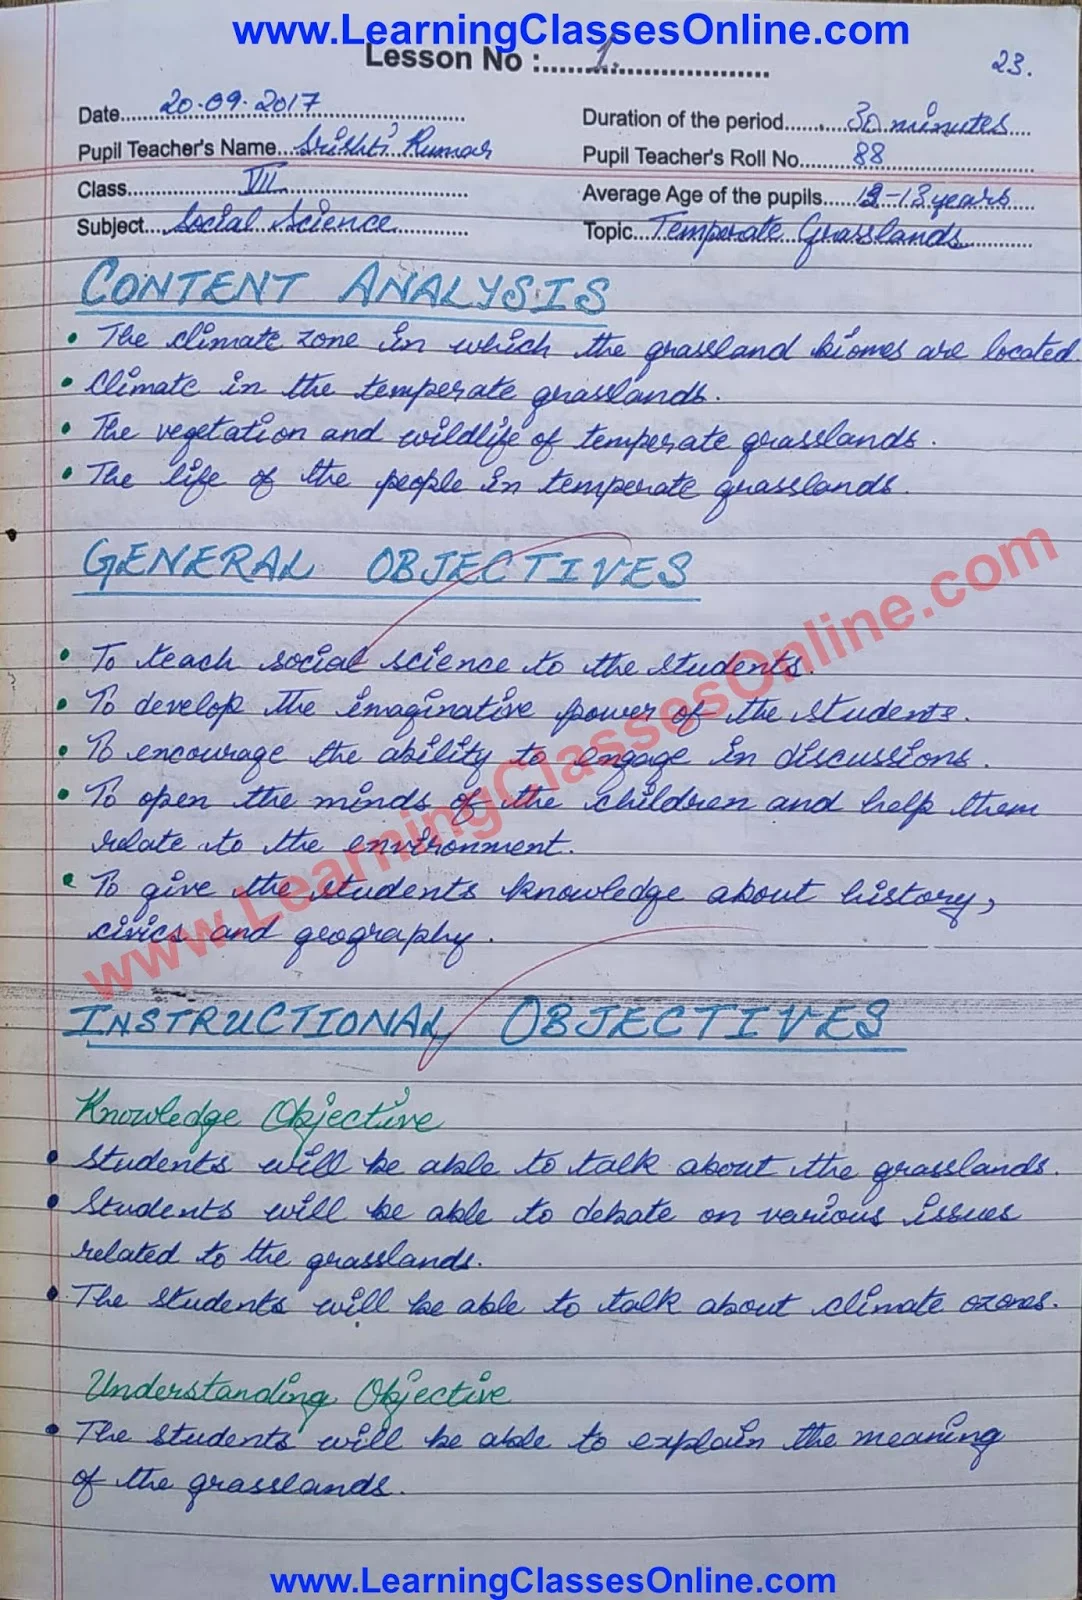 www.LearningClassesOnline.com
Lesson No :.....1.....
23.
Date....20.09.2017....
Duration of the period....30 minutes....
Pupil Teacher's Name....Srishti Kumar
Pupil Teacher's Roll No....88....
Class....VII....
Average Age of the pupils....12-13 years....
Subject....Social Science....
Topic....Temperate Grasslands....
CONTENT ANALYSIS
• The climate zone in which the grassland biomes are located.
• Climate in the temperate grasslands.
• The vegetation and wildlife of temperate grasslands.
• The life of the people in temperate grasslands.
GENERAL OBJECTIVES
• To teach social science to the students.
• To develop the imaginative power of the students.
• To encourage the ability to engage in discussions.
• To open the minds of the children and help them
relate to the environment.
• To give the students knowledge about history,
civics and geography.
www.LearningClassesOnline.com
INSTRUCTIONAL OBJECTIVES
Knowledge Objective
• Students will be able to talk about the grasslands.
• Students will be able to debate on various issues
related to the grasslands.
• The students will be able to talk about climate ozones.
Understanding Objective
• The students will be able to explain the meaning
of the grasslands.
www.LearningClassesOnline.com